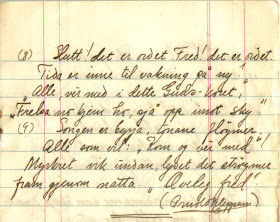 (8) Slutt! det er ordet Fred! det er ordet.
Tida er inne til vakning på ny.
"Alle, ver med i dette Guds-koret,"
"Frelsa no kjem ho, sjå opp imot sky."
(9) Songen er byrja, tonane fløymer.
Alle som vil: "Kom og ver med"!
Myrkret vik undan, lyset det strøymer
fram gjenom natta. "Ævleg fred"